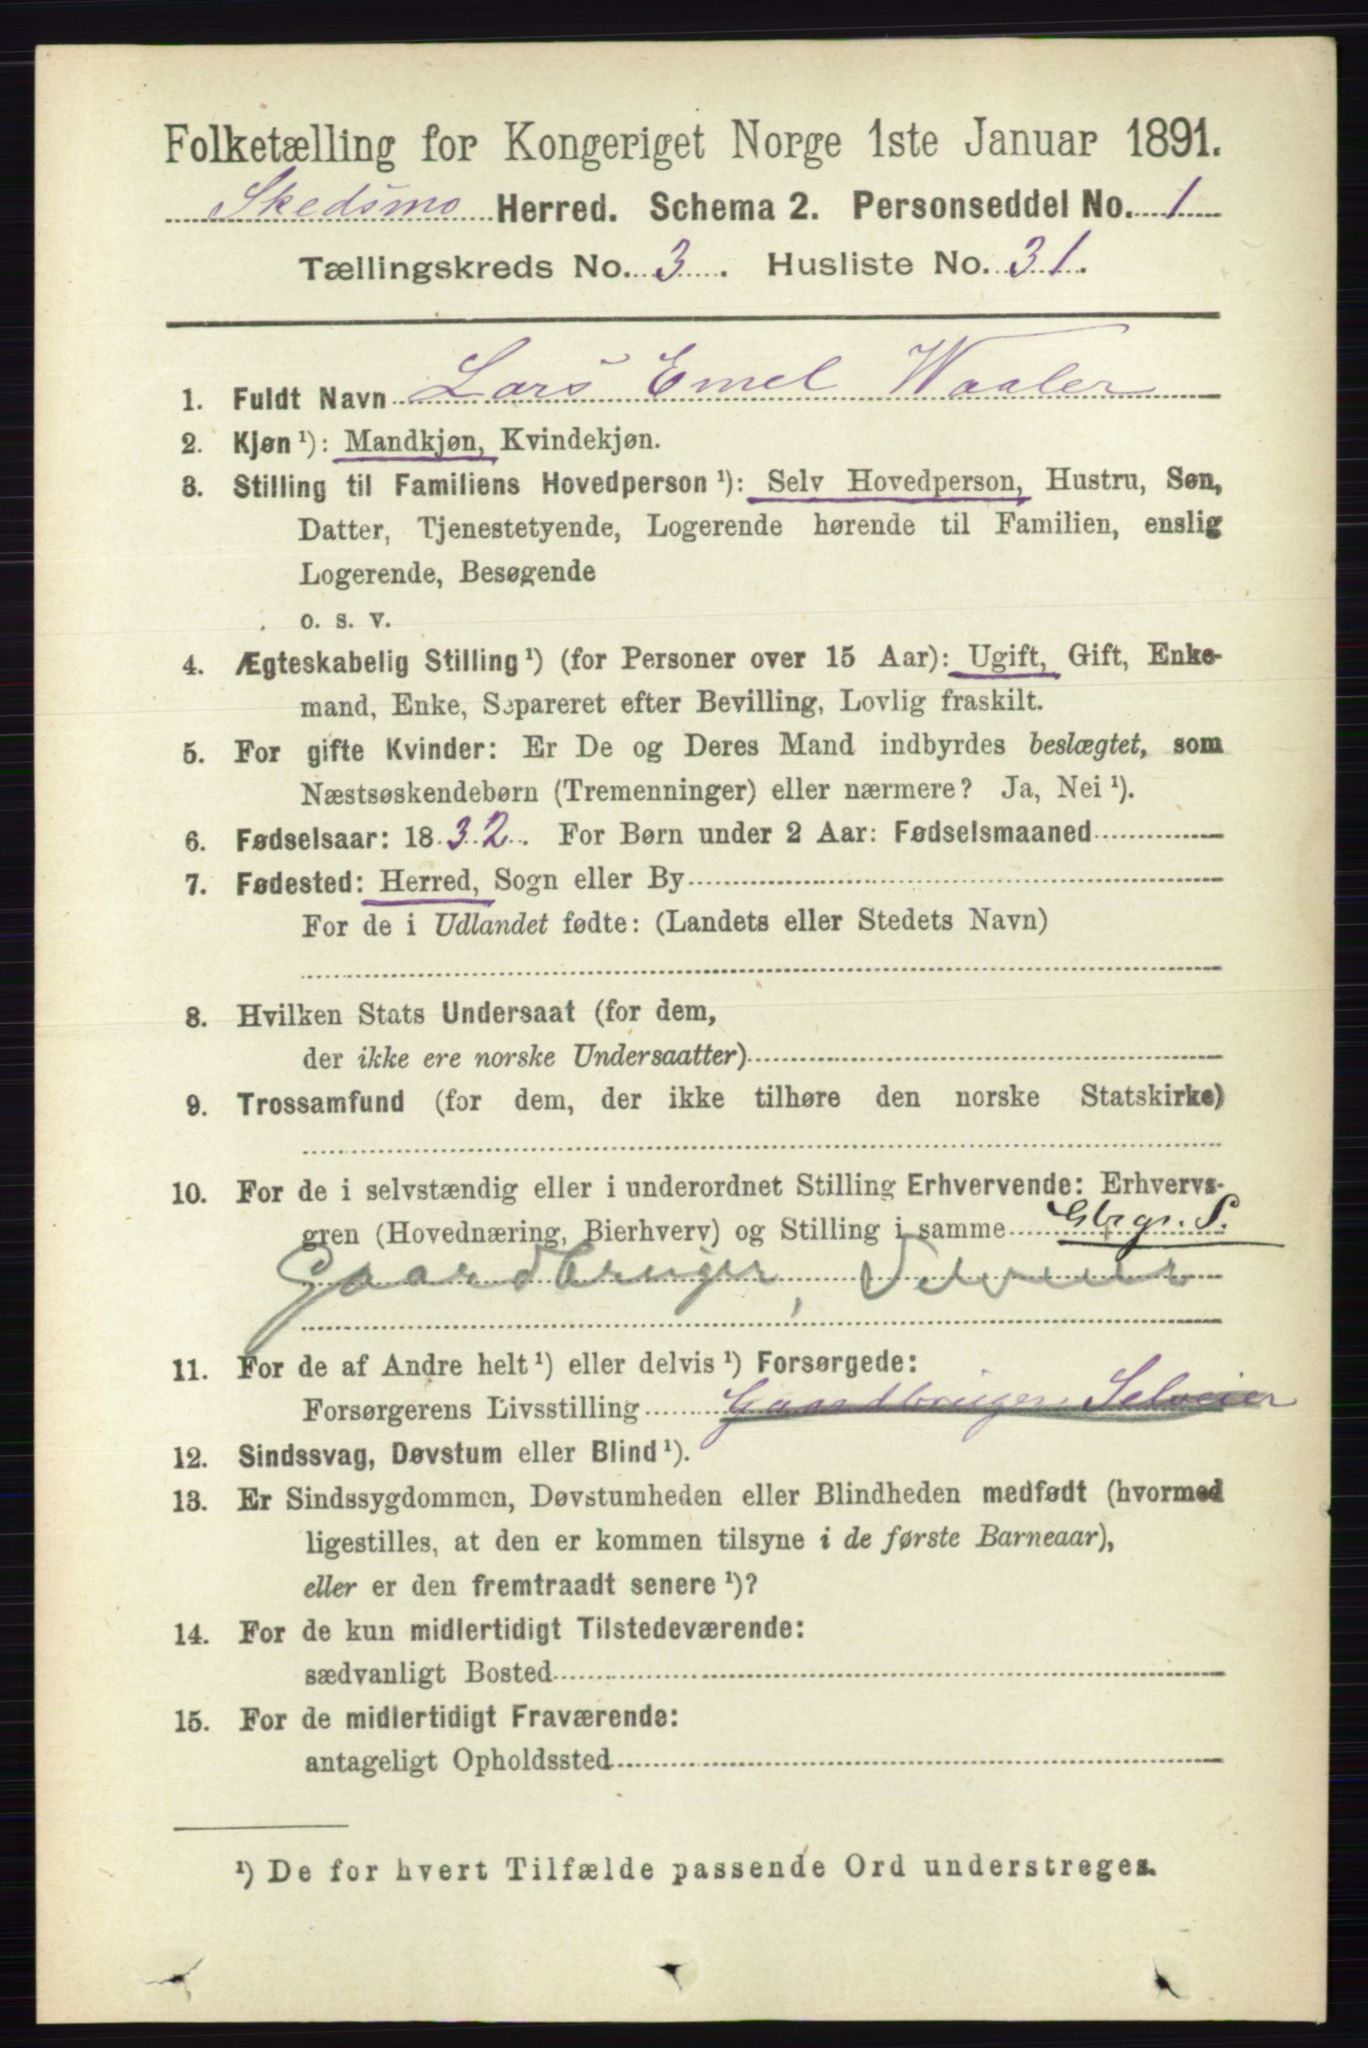 Folketælling for Kongeriget Norge 1ste Januar 1891.
Skedsmo Herred. Schema 2. Personseddel No. 1
Tællingskreds No. 3. Husliste No. 31.
1. Fuldt Navn Lars Emel Waaler
2. Kjøn¹): Mandkjøn, Kvindekjøn.
3. Stilling til Familiens Hovedperson¹): Selv Hovedperson, Hustru, Søn,
Datter, Tjenestetyende, Logerende hørende til Familien, enslig
Logerende, Besøgende
o. s. v.
4. Ægteskabelig Stilling¹) (for Personer over 15 Aar): Ugift, Gift, Enke-
mand, Enke, Separeret efter Bevilling, Lovlig fraskilt.
5. For gifte Kvinder: Er De og Deres Mand indbyrdes beslægtet, som
Næstsøskendebørn (Tremenninger) eller nærmere? Ja, Nei¹).
6. Fødselsaar: 1832. For Børn under 2 Aar: Fødselsmaaned
7. Fødested: Herred, Sogn eller By
For de i Udlandet fødte: (Landets eller Stedets Navn)
8. Hvilken Stats Undersaat (for dem,
der ikke ere norske Undersaatter)
9. Trossamfund (for dem, der ikke tilhøre den norske Statskirke)
10. For de i selvstændig eller i underordnet Stilling Erhvervende: Erhvervs-
gren (Hovednæring, Bierhverv) og Stilling i samme Gbgr. S.
Gaardbruger, Selveier
11. For de af Andre helt¹) eller delvis¹) Forsørgede:
Forsørgerens Livsstilling Gaardbruger Selveier
12. Sindssvag, Døvstum eller Blind¹).
13. Er Sindssygdommen, Døvstumheden eller Blindheden medfødt (hvormed
ligestilles, at den er kommen tilsyne i de første Barneaar),
eller er den fremtraadt senere¹)?
14. For de kun midlertidigt Tilstedeværende:
sædvanligt Bosted
15. For de midlertidigt Fraværende:
antageligt Opholdssted
¹) De for hvert Tilfælde passende Ord understreges.